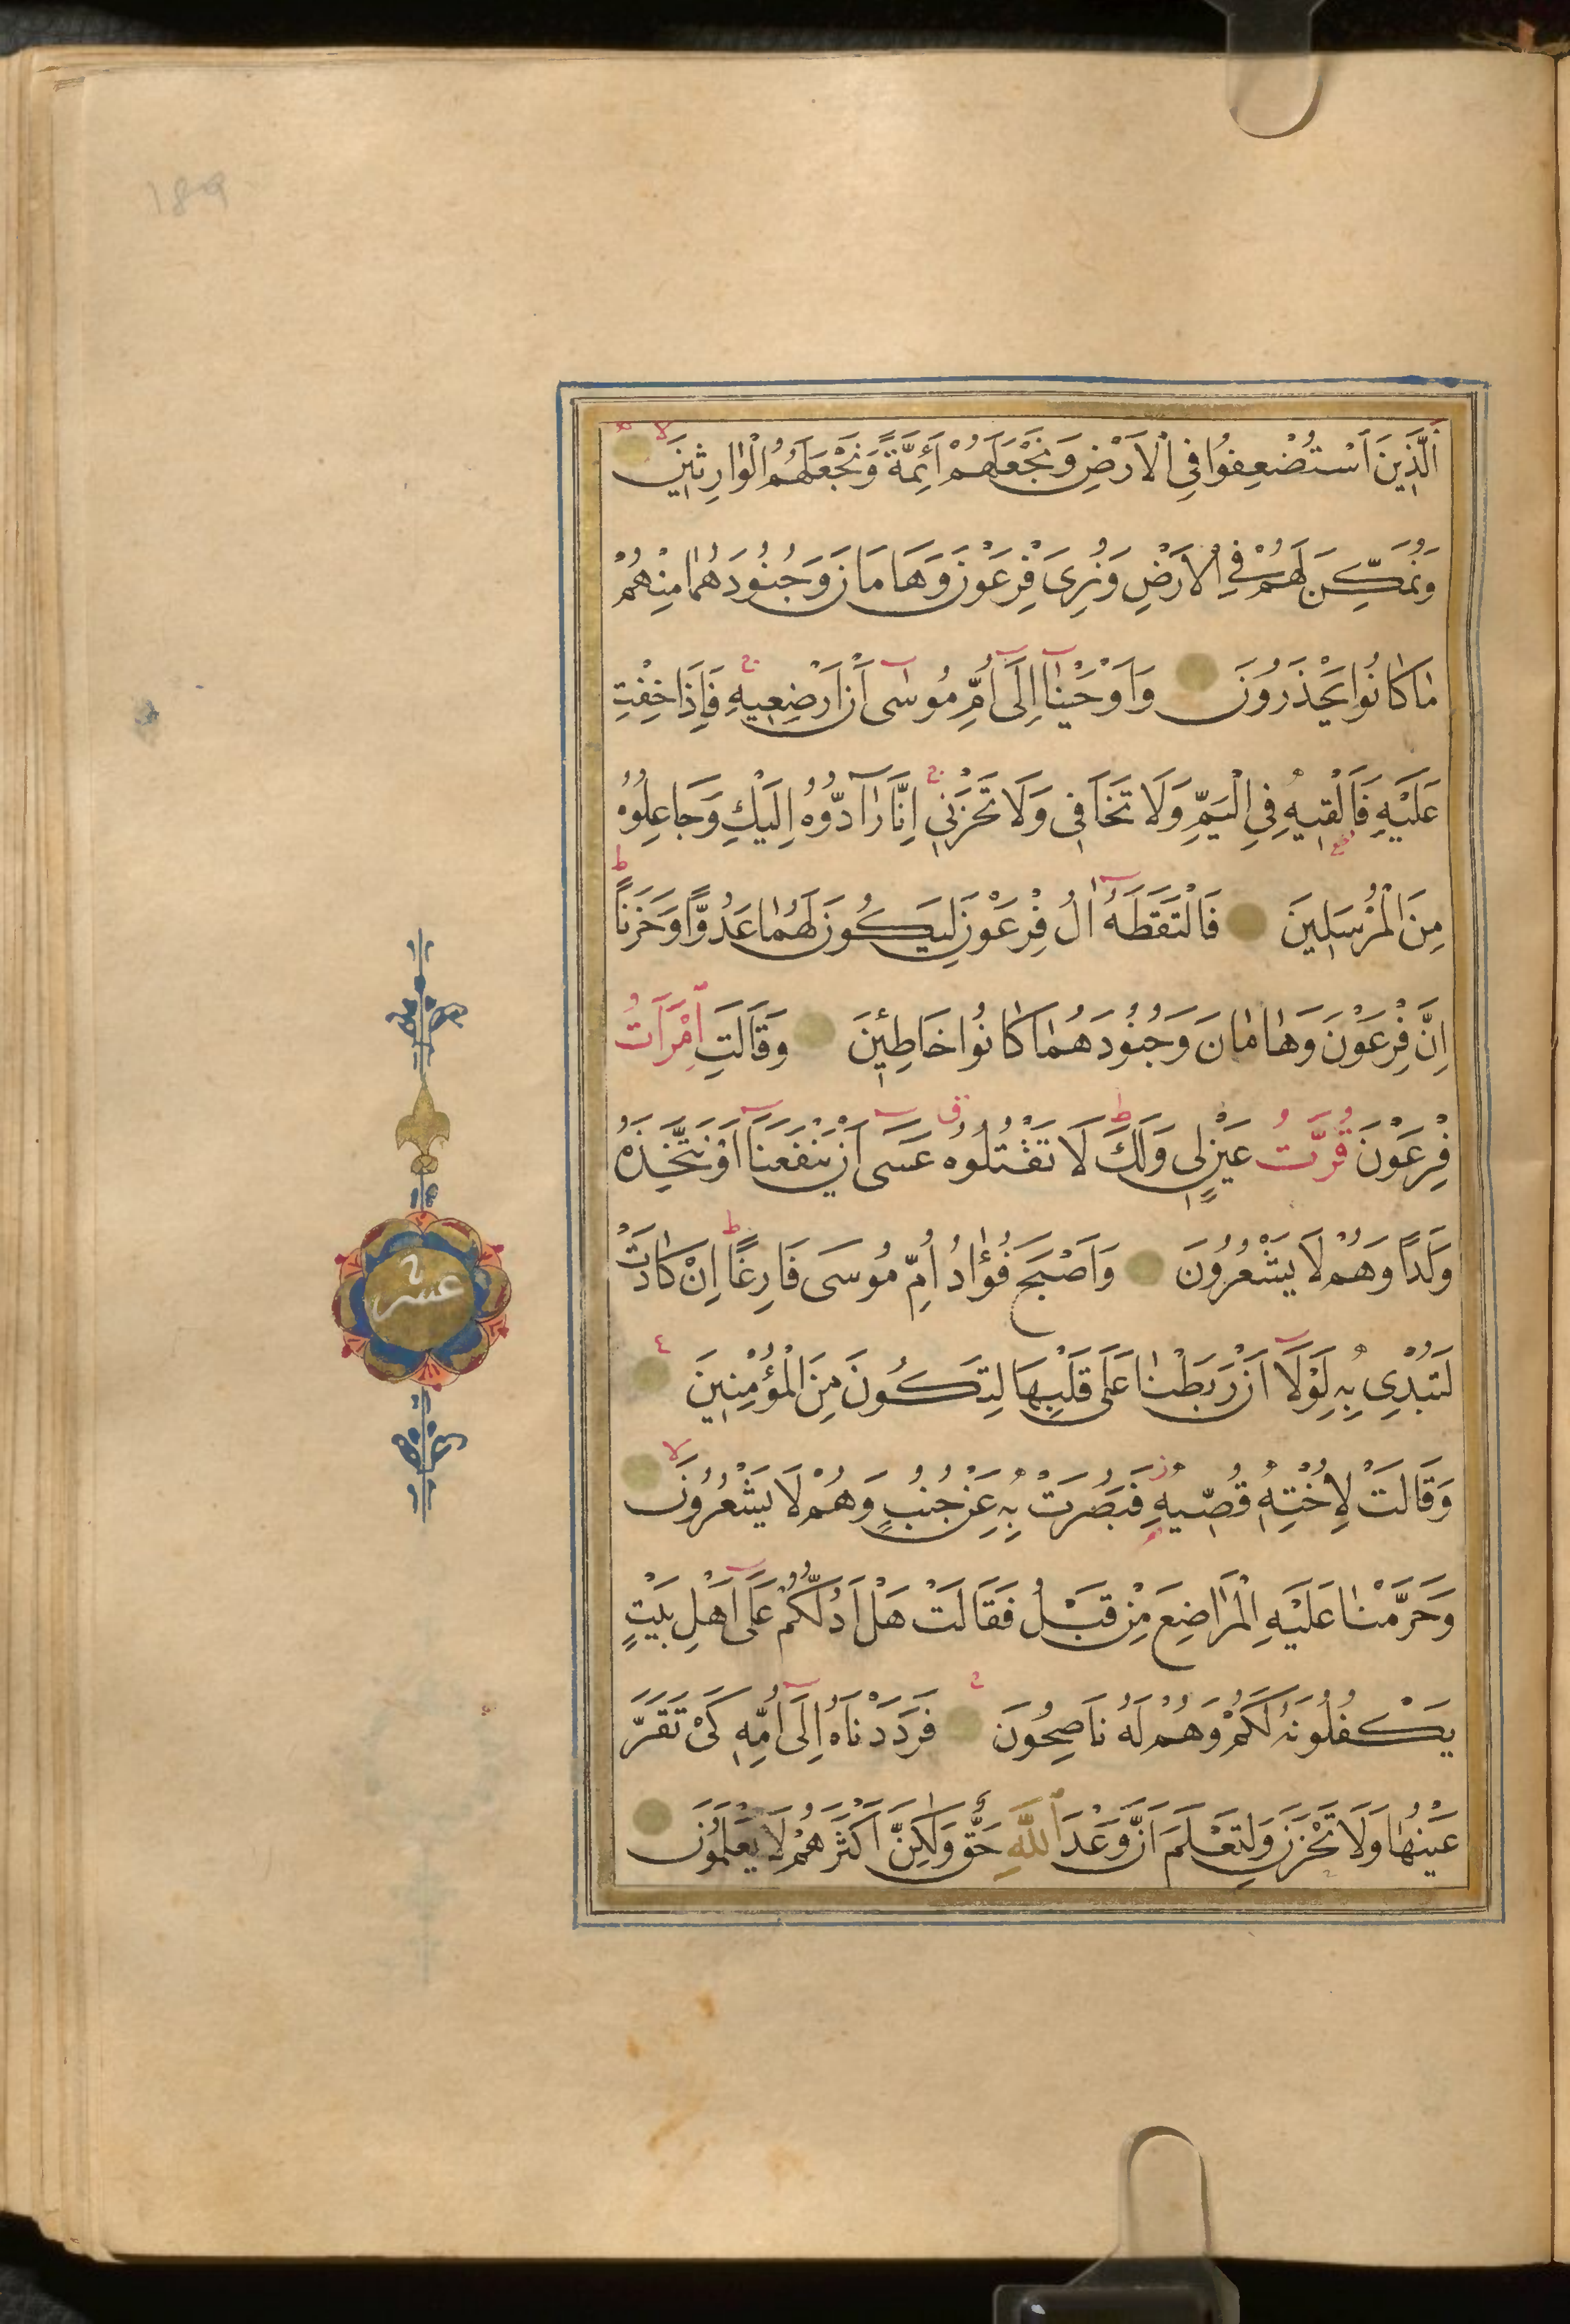 189
اَلَّذِينَ اسْتُضْعِفُوا فِي الْاَرْضِ وَنَجْعَلَهُمْ اَئِمَّةً وَنَجْعَلَهُمُ الْوَارِثِينَ لا
وَنُمَكِّنَ لَهُمْ فِي الْاَرْضِ وَنُرِيَ فِرْعَوْنَ وَهَامَانَ وَجُنُودَهُمَا مِنْهُمْ
مَا كَانُوا يَحْذَرُونَ وَاَوْحَيْنَا اِلَى اُمِّ مُوسَى اَنْ اَرْضِعِيهِ ج فَاِذَا خِفْتِ
عَلَيْهِ فَاَلْقِيهِ فِي الْيَمِّ وَلَا تَخَافِي وَلَا تَحْزَنِي ج اِنَّا رَادُّوهُ اِلَيْكِ وَجَاعِلُوهُ
مِنَ الْمُرْسَلِينَ فَالْتَقَطَهُ اٰلُ فِرْعَوْنَ لِيَكُونَ لَهُمْ عَدُوًّا وَحَزَنًا ط
اِنَّ فِرْعَوْنَ وَهَامَانَ وَجُنُودَهُمَا كَانُوا خَاطِئِينَ وَقَالَتِ امْرَاَتُ
فِرْعَوْنَ قُرَّتُ عَيْنٍ لِي وَلَكَ ط لَا تَقْتُلُوهُ ق عَسَى اَنْ يَنْفَعَنَا اَوْ نَتَّخِذَهُ
وَلَدًا وَهُمْ لَا يَشْعُرُونَ وَاَصْبَحَ فُؤَادُ اُمِّ مُوسَى فَارِغًا ط اِنْ كَادَتْ
لَتُبْدِي بِهِ لَوْلَا اَنْ رَبَطْنَا عَلَى قَلْبِهَا لِتَكُونَ مِنَ الْمُؤْمِنِينَ
وَقَالَتْ لِاُخْتِهِ قُصِّيهِ ز فَبَصُرَتْ بِهِ عَنْ جُنُبٍ وَهُمْ لَا يَشْعُرُونَ لا
وَحَرَّمْنَا عَلَيْهِ الْمَرَاضِعَ مِنْ قَبْلُ فَقَالَتْ هَلْ اَدُلُّكُمْ عَلَى اَهْلِ بَيْتٍ
يَكْفُلُونَهُ لَكُمْ وَهُمْ لَهُ نَاصِحُونَ فَرَدَدْنَاهُ اِلَى اُمِّهِ كَيْ تَقَرَّ
عَيْنُهَا وَلَا تَحْزَنَ وَلِتَعْلَمَ اَنَّ وَعْدَ اللَّهِ حَقٌّ وَلَكِنَّ اَكْثَرَهُمْ لَا يَعْلَمُونَ
عشر